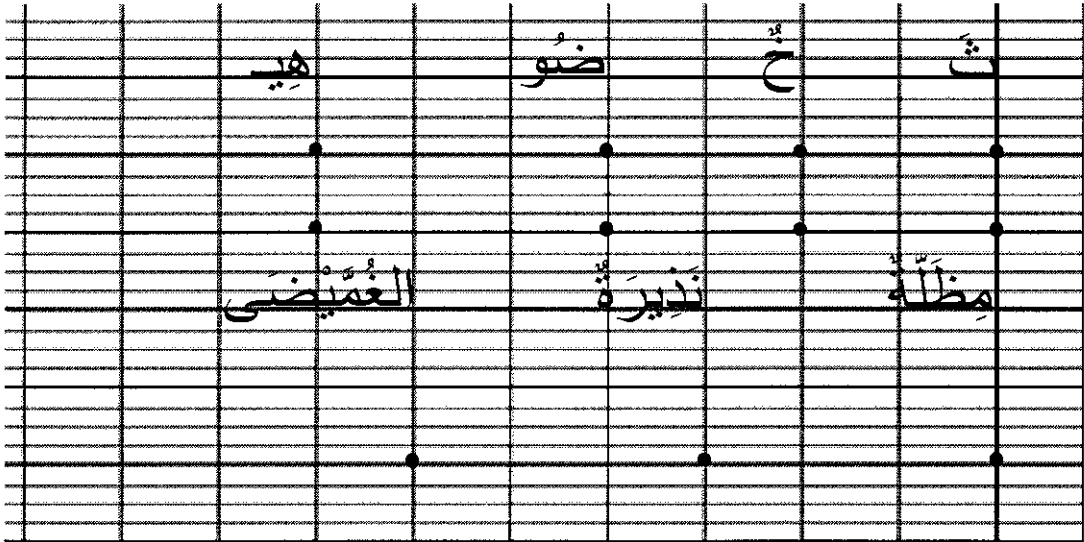 ثَ خٌ ضُو هِيـ
مِظَلَّةٌ نَذِيرَةٌ الغُمَّيْضَى